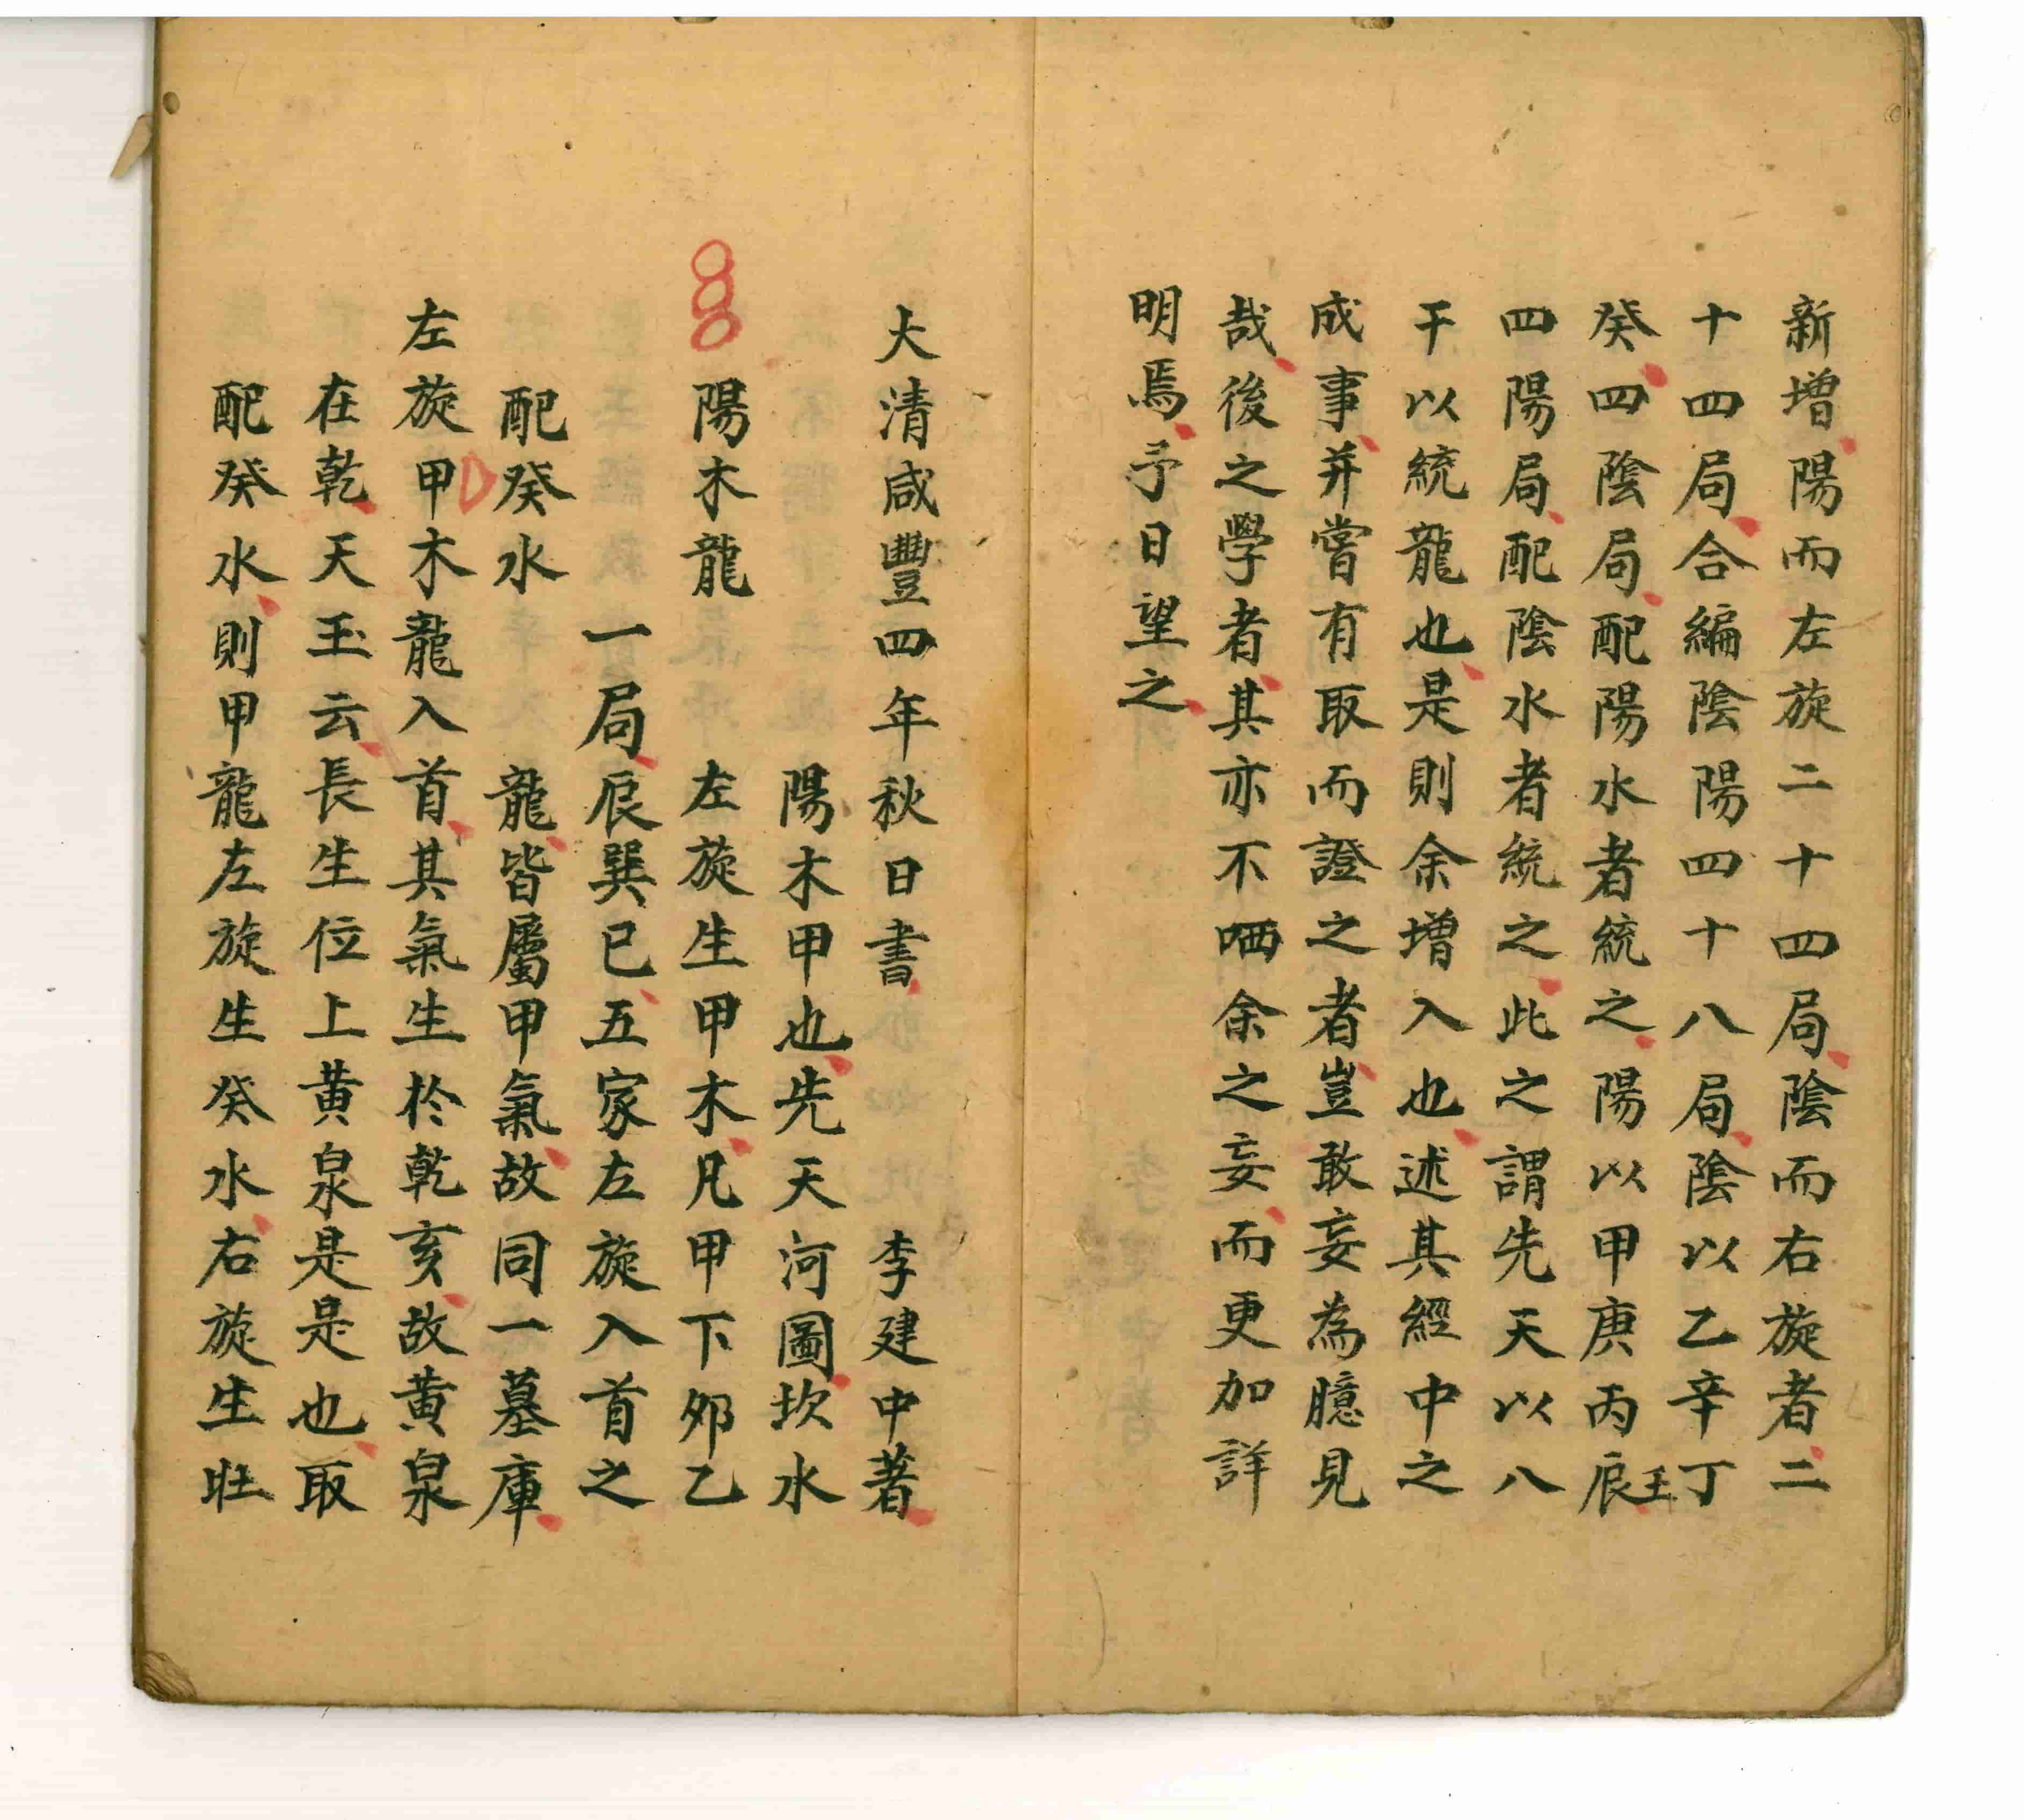 新增陽而左旋二十四局陰而右旋者二
十四局合編陰陽四十八局陰以乙辛丁
癸四陰局配陽水者統之陽以甲庚丙辰壬
四陽局配陰水者統之此之謂先天以八
干以統龍也是則余增入也述其經中之
成事并嘗有取而證之者豈敢妄為臆見
哉後之學者其亦不哂余之妄而更加詳
明焉予日望之
大清咸豐四年秋日書 李建中著
陽木甲也先天河圖坎水
陽木龍 左旋生甲木凡甲下夘乙
一局辰巽巳五家左旋入首之
配癸水 龍皆屬甲氣故同一墓庫
左旋甲木龍入首其氣生於乾亥故黃泉
在乾天玉云長生位上黃泉是是也取
配癸水則甲龍左旋生癸水右旋生壯